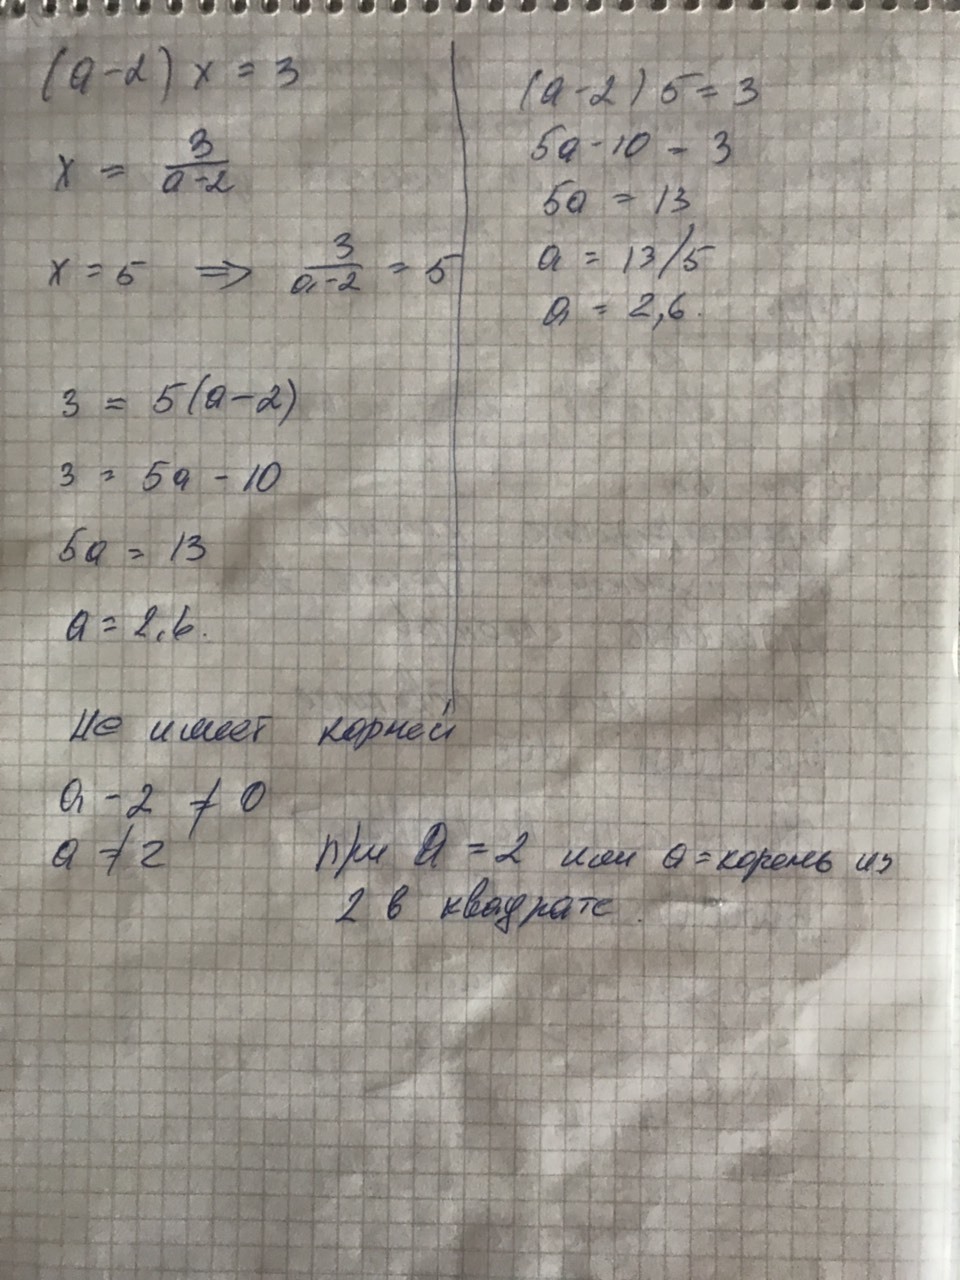 (a-2) x = 3
x = 3/(a-2)
x = 5 ⇒ 3/(a-2) = 5
3 = 5(a-2)
3 = 5a - 10
5a = 13
a = 2,6.
(a-2) 5 = 3
5a - 10 = 3
5a = 13
a = 13/5
a = 2,6.
Не имеет корней
a - 2 ≠ 0
a ≠ 2
при a = 2 или a = корень из
2 в квадрате.